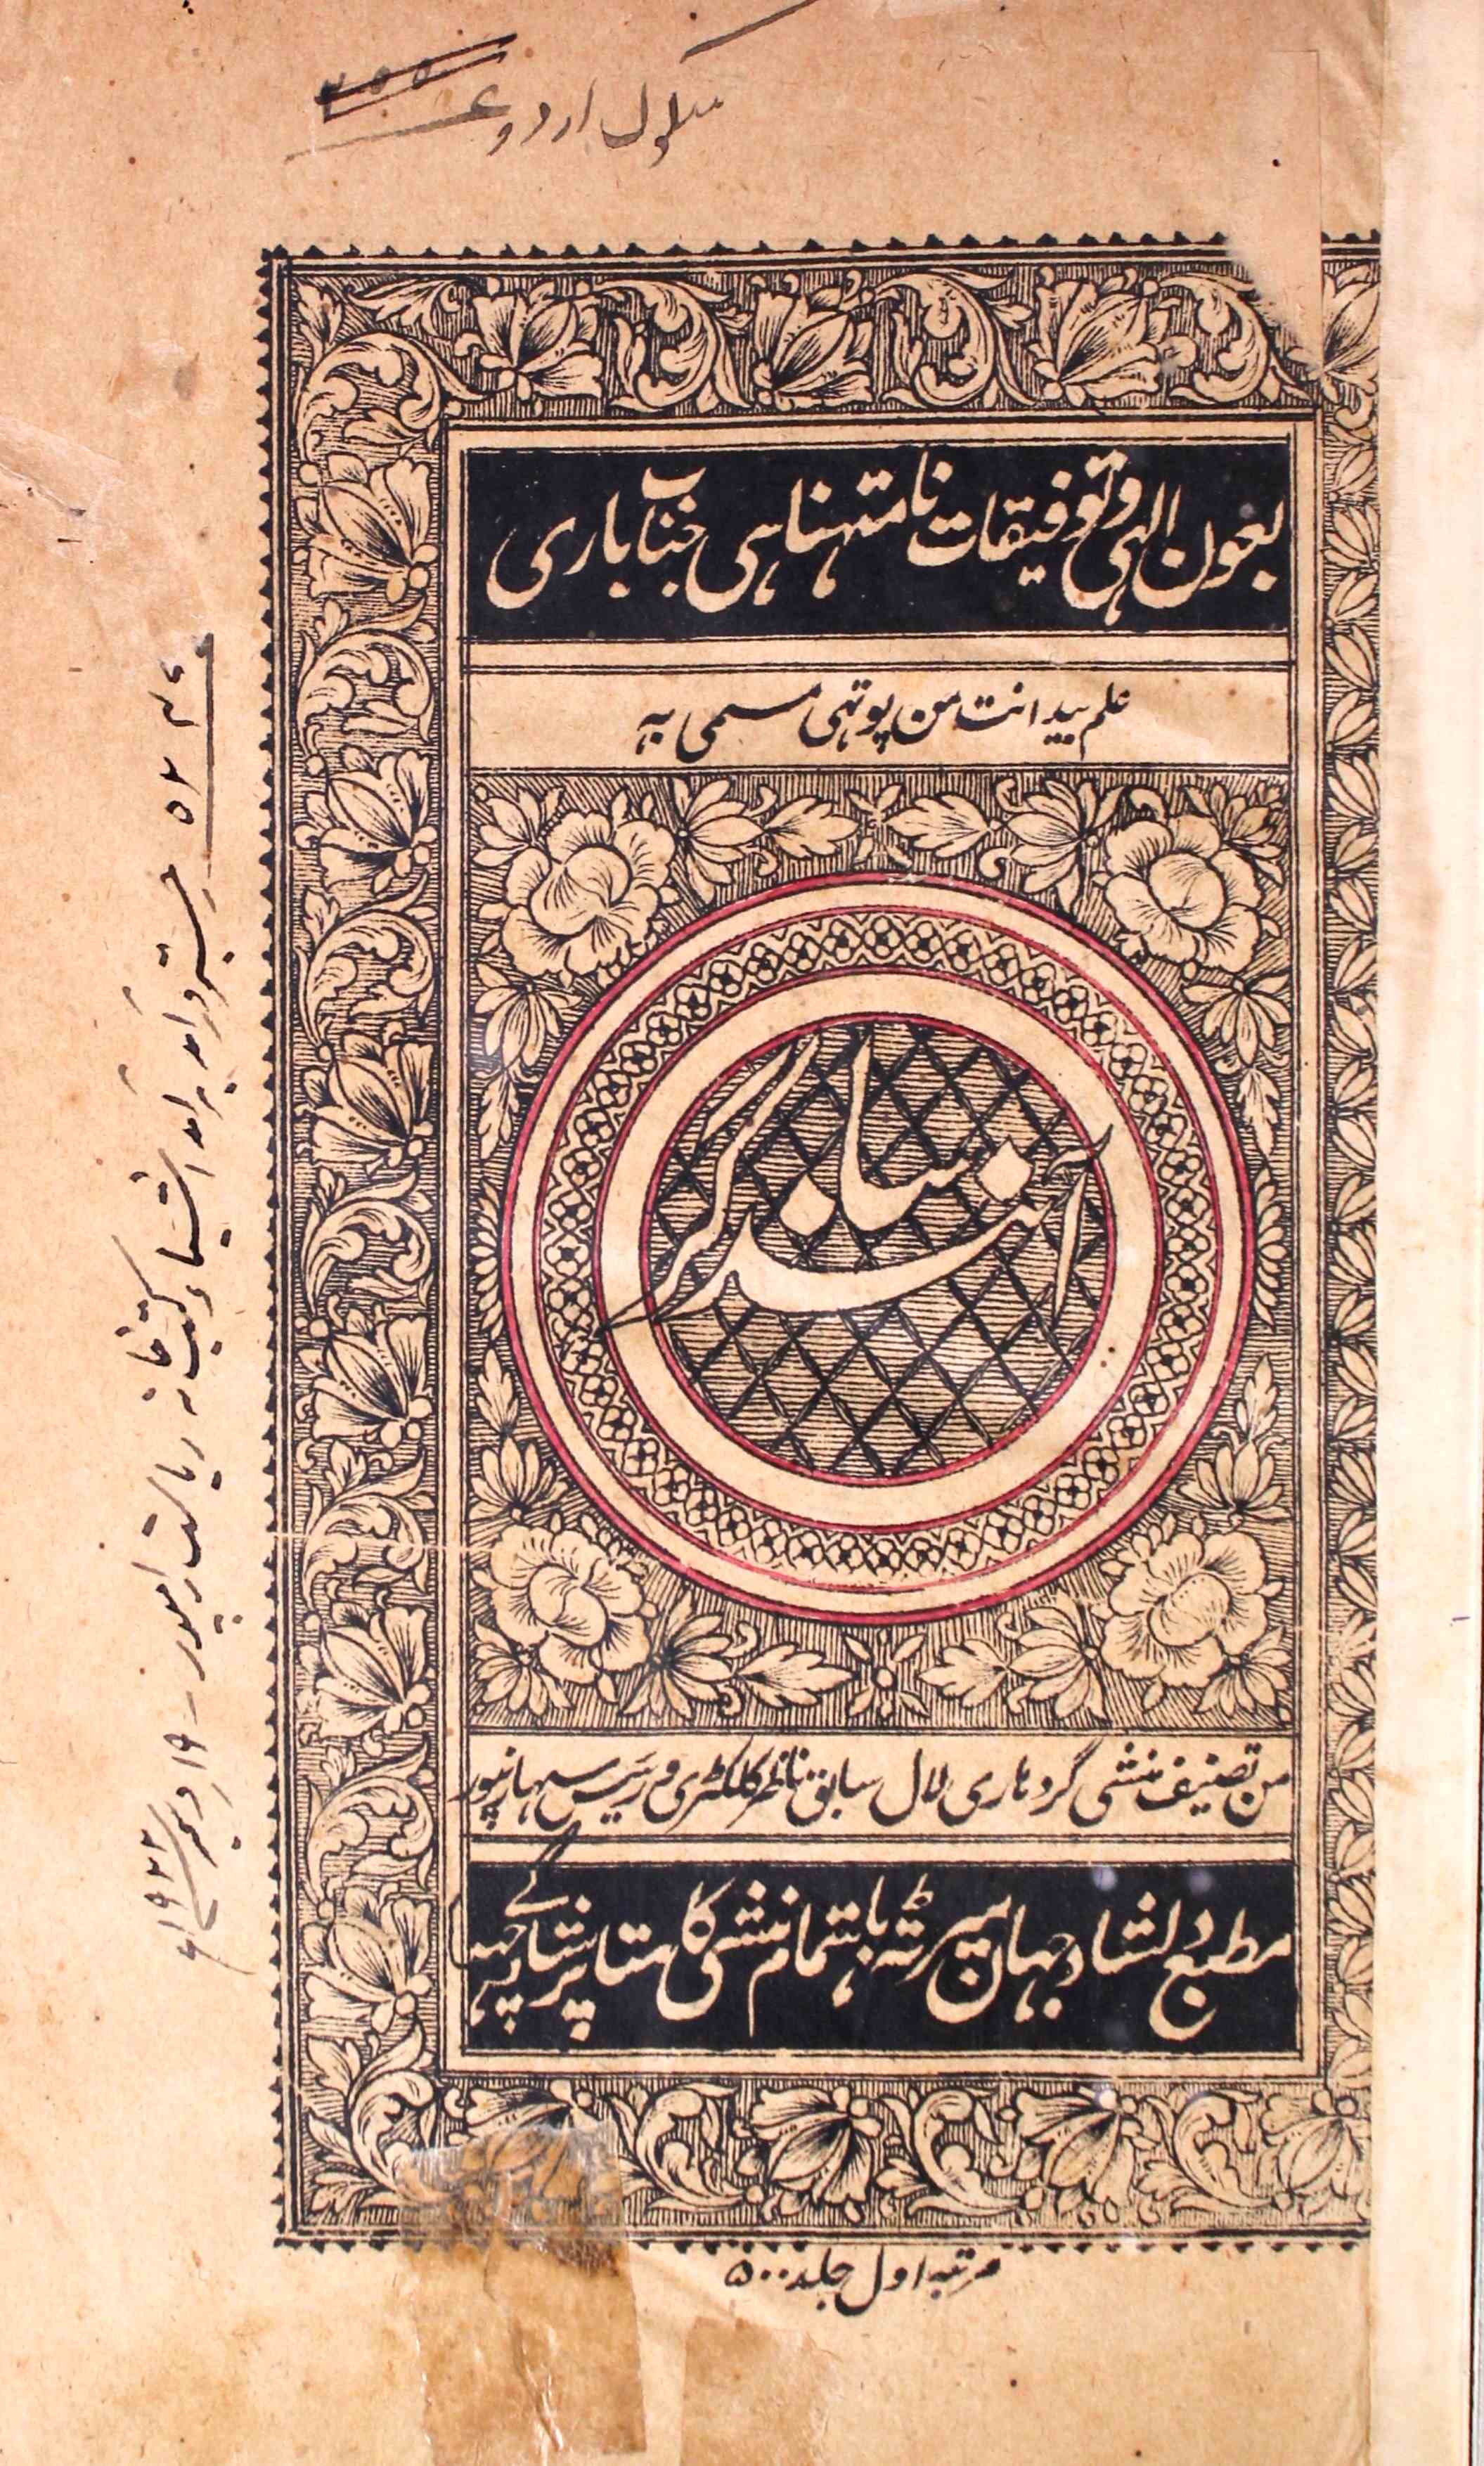 سلوک اردو
بعون الہی و توفیقات نامتہناہی جناب باری
علم بیدانت من پوتھی مسمی بہ
آنند ساگر
من تصنیف منشی گردھاری لال سابق ناظر کلکٹری و رئیس سہارنپور
مطبع دلشاد جہان میرٹھ باہتمام منشی کامتا پرشاد کے چھپی
مرتبہ اول جلد ۵۰۰
رجسٹر درآمد برآمد اشیاء کتب خانہ ریاست رامپور - ۱۹ دسمبر ۱۹۲۲ء